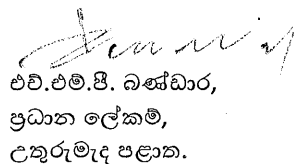 එච්.එම්.පී. බණ්ඩාර,
ප්‍රධාන ලේකම්,
උතුරුමැද පළාත.